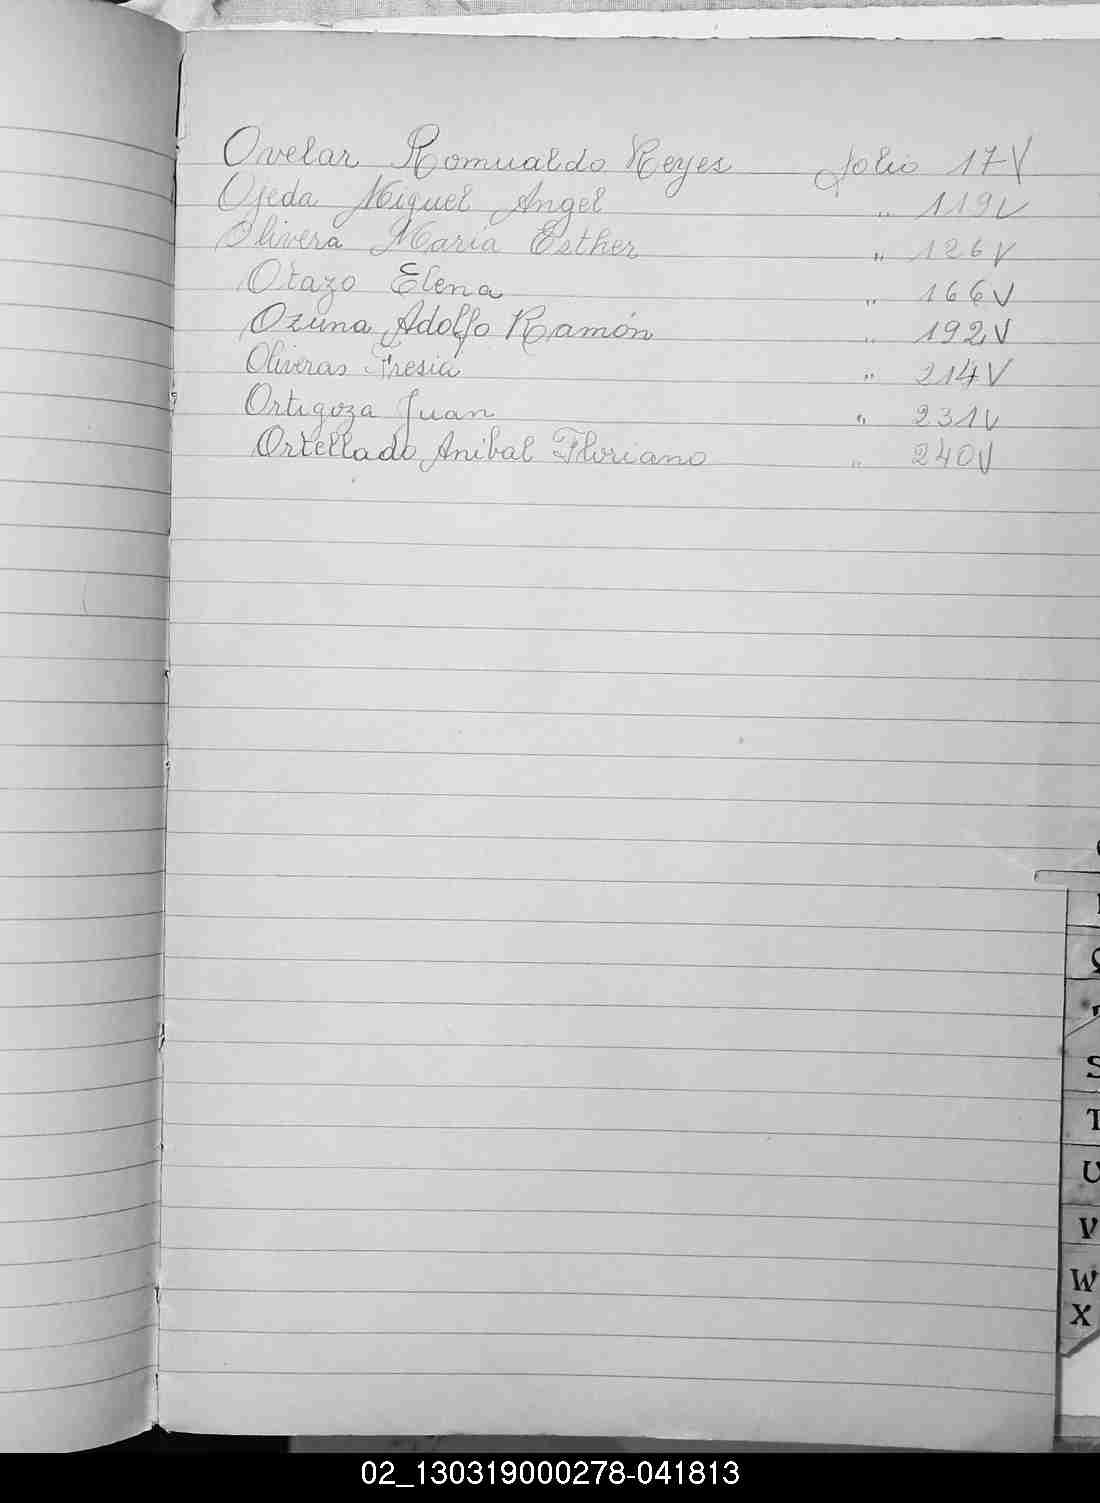 Ovelar Romualdo Reyes folio 17V
Ojeda Miguel Angel " 119V
Olivera Maria Esther " 126V
Otazo Elena " 166V
Ozuna Adolfo Ramón " 192V
Oliveras Fresia " 214V
Ortigoza Juan " 231V
Ortellado Anibal Floriano " 240V
S
T
U
V
W
X
02_130319000278-041813